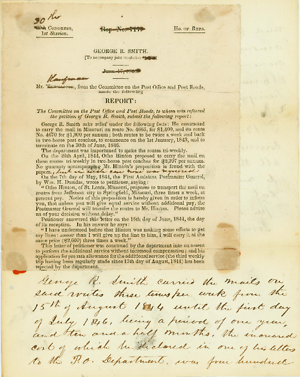 30th
CONGRESS,
1st Session.
HO. OF REPS.
GEORGE R. SMITH.
[To accompany
Mr. Kaufman, from the Committee on the Post Office and Post Roads,
made the following
REPORT:
The Committee on the Post Office and Post Roads, to whom was referred
the petition of George R. Smith, submit the following report:
George R. Smith asks relief under the following facts: He contracted
to carry the mail in Missouri on route No.
No. 4670 for $1,900 per annum; both routes to be twice a week and back
in two horse post coaches, to commence on the 1st January, 1843, and to
terminate on the 30th of June, 1846.
The department was importuned to make the routes tri-weekly.
On the 26th April, 1844, Otho Hinton proposed to carry the mail on
these routes tri-weekly in two horse post coaches for
On the 7th day of May, 1844, the First Assistant Postmaster General,
by Wm. H. Dundas, wrote to petitioner, saying:
"Otho Hinton, of St. Louis, Missouri, proposes to transport the mail on
routes from Jefferson city to Springfield, Missouri, three times a week, at
present pay. Notice of this proposition is hereby given in order to inform
you, that unless you will give equal service without additional pay, the
Postmaster General will transfer the routes to Mr. Hinton. Please advise
me of your decision without delay."
Petitioner answered this letter on the 16th day of June, 1844, the day
of its reception. In his answer he says:
"I have understood before that Hinton was making more efforts to get
my lines; sooner than I will give up the line to him, I will carry it at the
same price ($9,650) three times a week."
This letter of petitioner was construed by the department into an answer
to perform the additional service without increased compensation; and his
application for pro rata allowance for the additional service (the third weekly
trip having been regularly made since 15th day of August, 1844) has been
rejected by the department.
George R. Smith carried the mails on
said routes three times per week from the
15th of August 1844 until the first day
of July 1846, being a period of one year,
and ten and a half months, the increased
cost of which he declared in one of his letters
to the P.O. Department, was four hundred